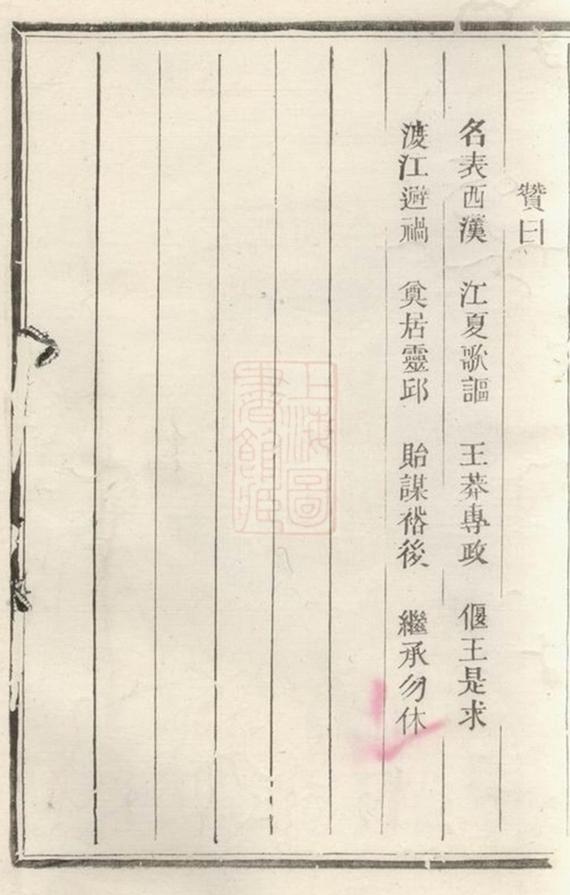 贊曰
名表西漢 江夏歌謳 王莽專政 偃王是求
渡江避禍 奠居靈邱 貽謀裕後 繼承勿休
上海圖
書館藏